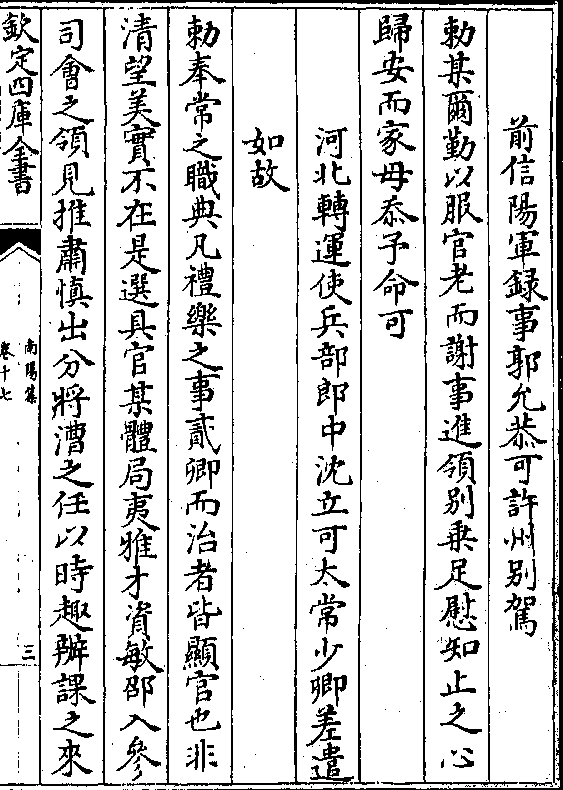 前信陽軍録事郭允恭可許州别駕
勅某爾勤以服官老而謝事進領别乗足慰知止之心
歸安而家毋忝予命可
河北轉運使兵部郎中沈立可太常少卿差遣
如故
勅奉常之職典凡禮樂之事貳卿而治者皆顯官也非
清望美實不在是選具官某體局夷雅才資敏邵入參
司會之領見推肅慎出分將漕之任以時趣辦課之來
欽定四庫全書
南陽集
卷十七
三